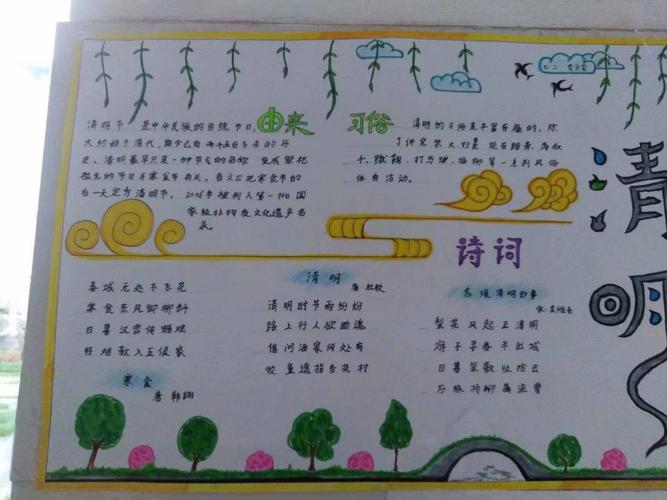 由来
清明节 是中华民族的传统节日，
大约始于周代，距今已有两千五百多年的历
史，清明最早只是一种节气的名称，变成祭祀
祖先的节日与寒食节有关。晋文公把寒食节的
后一天定为清明节。2006年被列入第一批国
家级非物质文化遗产名
录。
习俗
清明的习俗是丰富有趣的，除
了讲究禁火、扫墓，还有踏青、荡秋
千、蹴鞠、打马球、插柳等一系列风俗
体育活动。
七二
清明
诗词
春城无处不飞花
寒食东风御柳斜
日暮汉宫传蜡烛
轻烟散入五侯家
寒食
唐 韩翃
清明
唐 杜牧
清明时节雨纷纷
路上行人欲断魂
借问酒家何处有
牧童遥指杏花村
苏堤清明即事
宋 吴惟信
梨花风起正清明
游子寻春半出城
日暮笙歌收拾去
万株杨柳属流莺